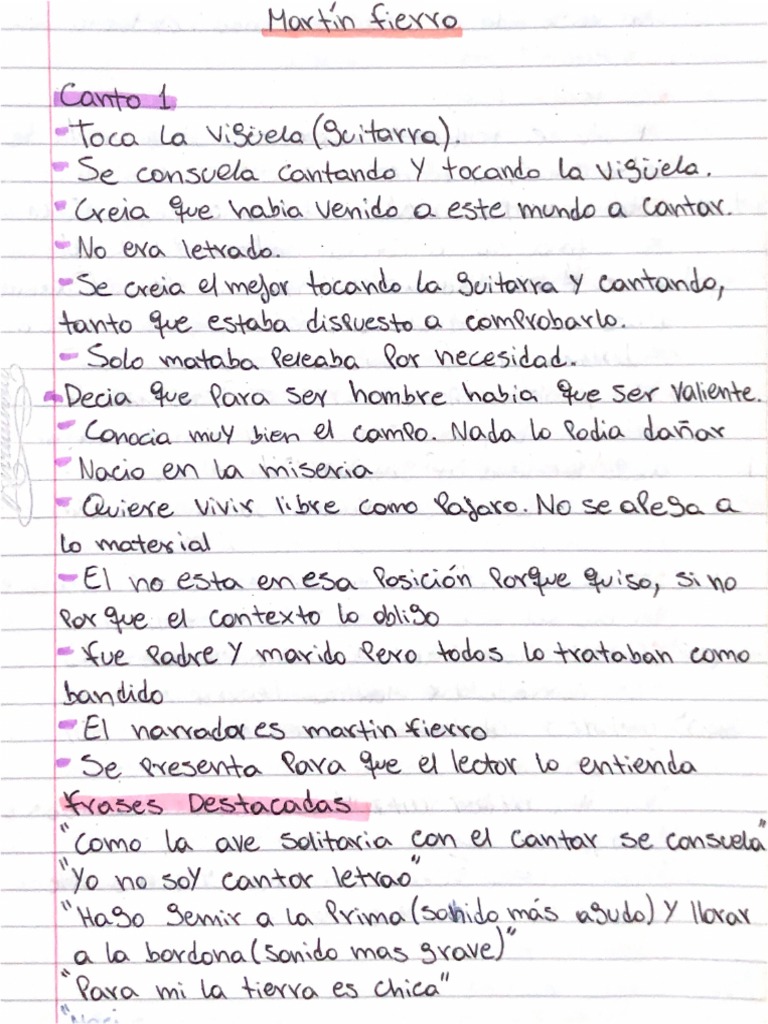 Martín fierro
Canto 1
- Toca la vigüela (guitarra).
- Se consuela cantando y tocando la vigüela.
- Creia que habia venido a este mundo a cantar.
- No era letrado.
- Se creia el mejor tocando la guitarra y cantando,
tanto que estaba dispuesto a comprobarlo.
- Solo mataba peleaba por necesidad.
- Decia que para ser hombre habia que ser valiente.
- Conocia muy bien el campo. Nada lo podia dañar
- Nacio en la miseria
- Quiere vivir libre como pajaro. No se apega a
lo material
- El no esta en esa posición porque quiso, si no
por que el contexto lo obligo
- fue padre y marido pero todos lo trataban como
bandido
- El narrador es martin fierro
- Se presenta para que el lector lo entienda
frases Destacadas
"Como la ave solitaria con el cantar se consuela"
"Yo no soy cantor letrao"
"Hago gemir a la prima (sonido más agudo) y llorar
a la bordona (sonido mas grave)"
"Para mi la tierra es chica"